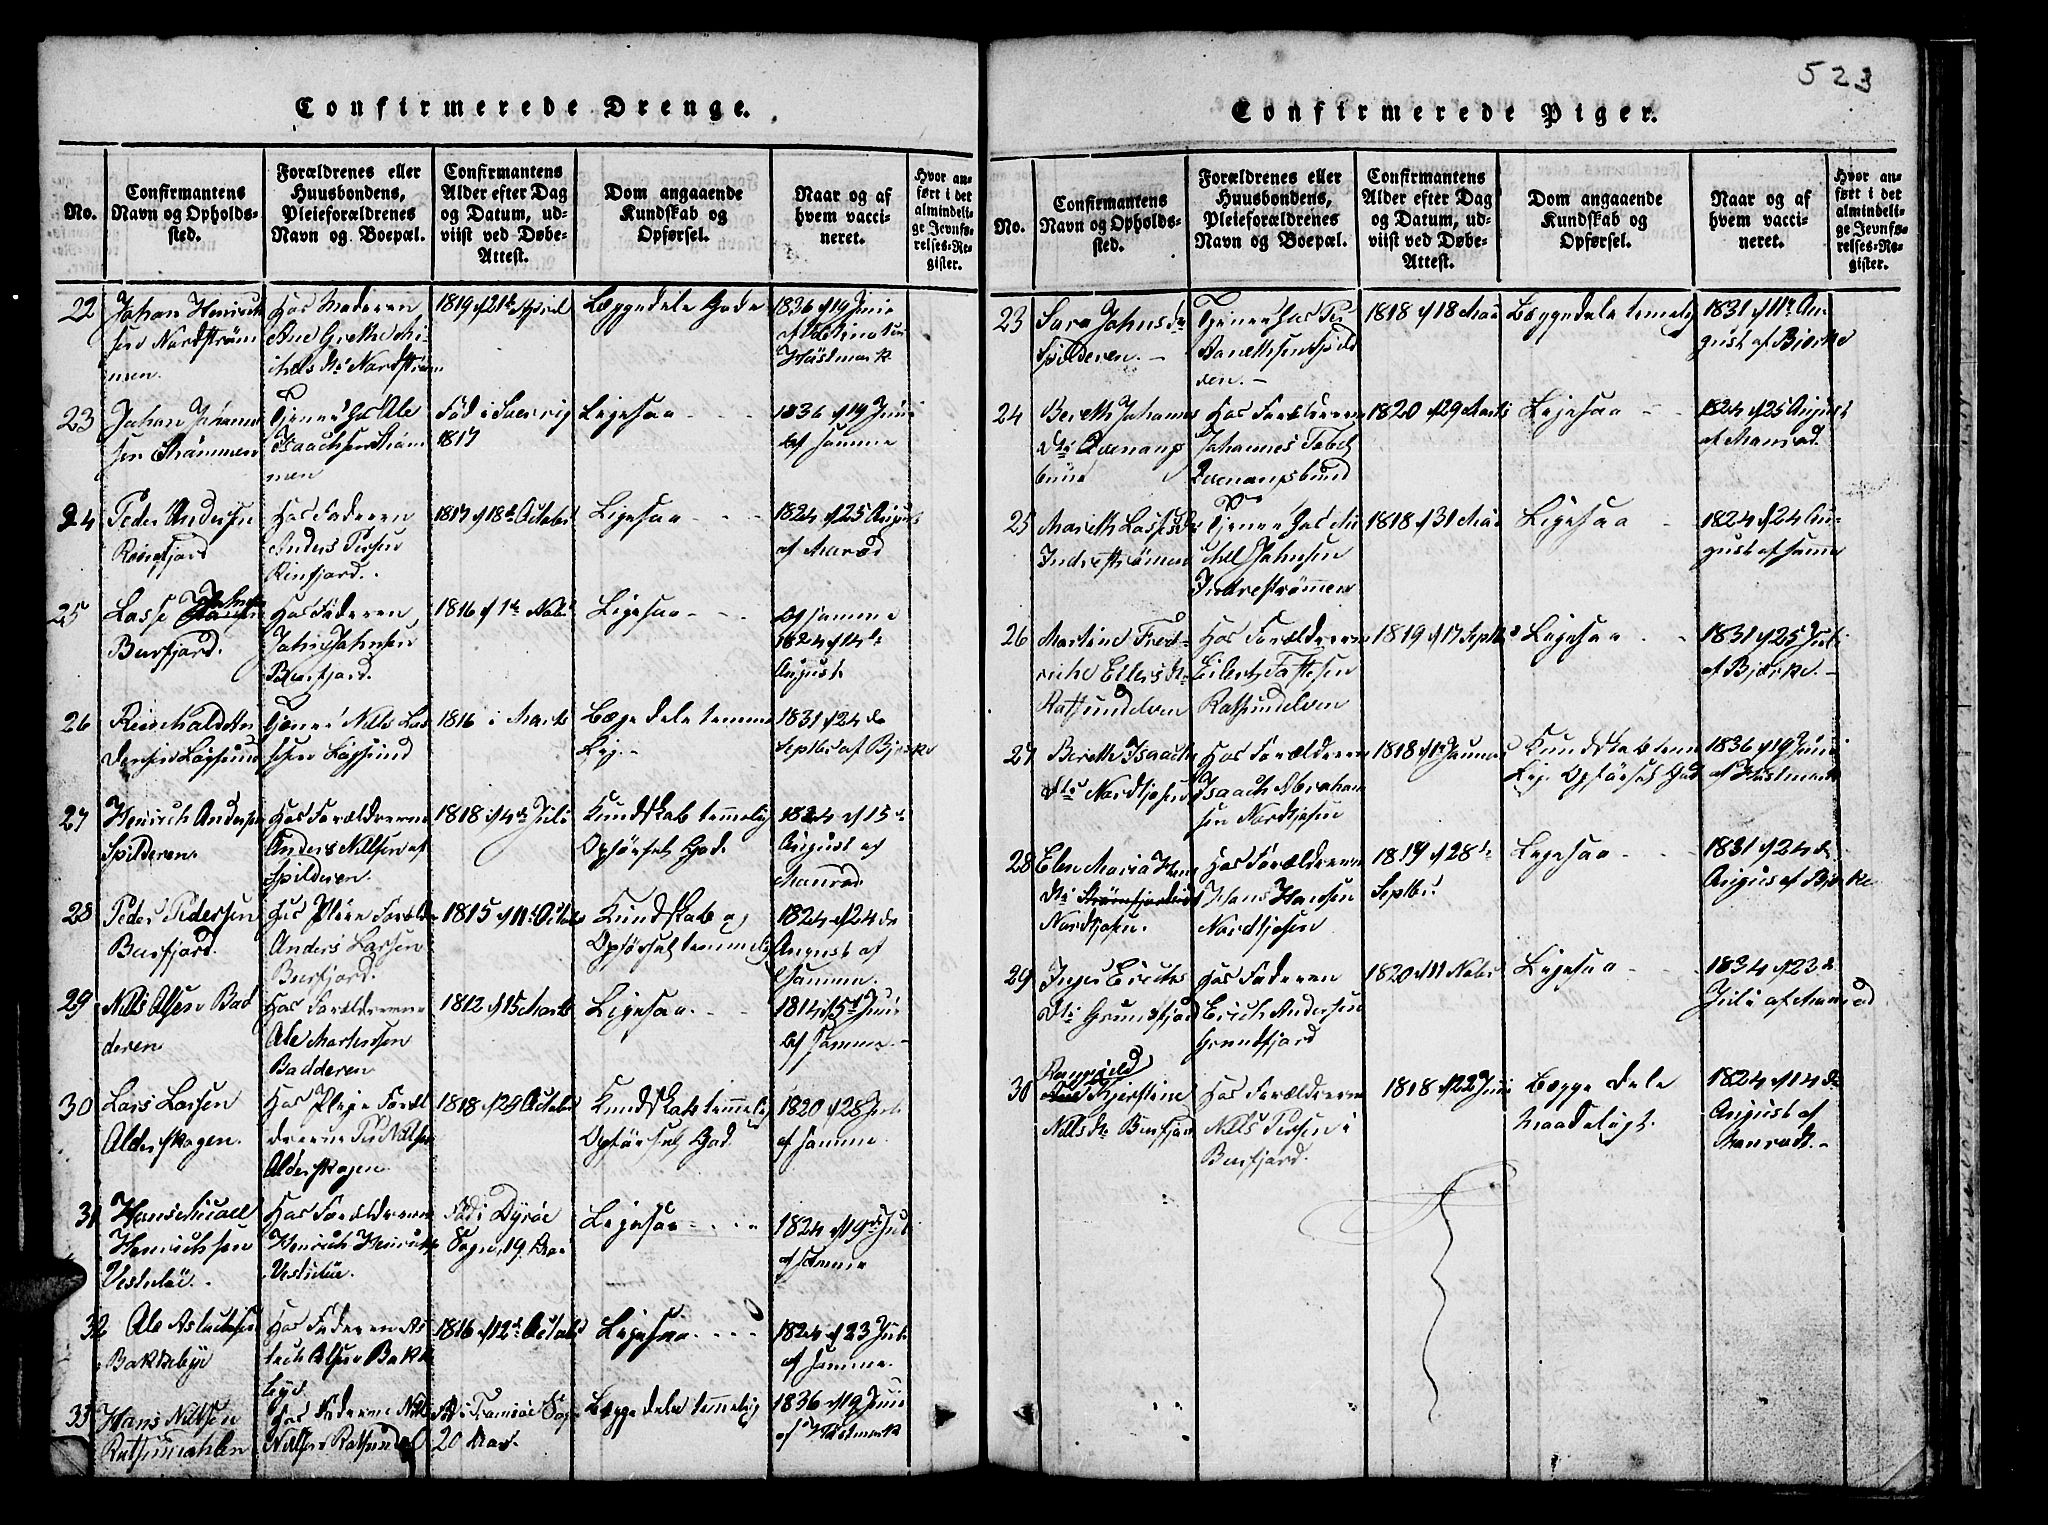 523
Confirmerede Drenge.
No.
Confirmantens Navn og Opholds-sted.
Forældrenes eller Huusbondens, Pleieforældrenes Navn og Boepæl.
Confirmantens Alder efter Dag og Datum, ud-viist ved Døbe-Attest.
Dom angaaende Kundskab og Opførsel.
Naar og af hvem vacci-neret.
Hvor an-ført i det almindeli-ge Jevnfø-relses-Re-gister.
22 Johan Henrich
sen Nordstrøm
men.
Hos Moderen
Ane Grethe Mi
chels Dr Nordstrøm
1819 d 21de April
Beggedele Gode
1836 d 19 Junii
af
Høstmark
23 Johan Johanne
sen Strømmen
Tjener hos Ole
Isaachsen Strøm
men
Fød i Sverrig
1817
Ligesaa
1836 d 19 Junii
af samme
24 Peder Andersen
Reinfjord
Hos Faderen
Anders Persen
Rinfjord.
1817 d 18de Octobr
Ligesaa
1824 d 25 August
af Manrod
25 Lasse Johnsen
Burfjord.
Hos Faderen
John Johnsen
Burfjord.
1816 d 1te Nobr
Ligesaa
af samme
1824 d 14de
August
26 Reinholdt An
dersen Løgsund
Tjener Nils Las
sen Løgsund
1816 i Marts
Begge dele temme
lig.
1831 d 24de
Septbr af Bjerke
27 Henrich Andersen
Spilderen.
Hos Forældrerne
Anders Nilsen af
Spilderen.
1818 d 4de Juli
Kundskab temmelig
Opførsel God.
1824 d 15de
August af
Manrod
28 Peder Pedersen
Burfjord.
Hos Pleie Foræld
Anders Larsen
Burfjord.
1815 d 11te Octobr
Kundskab og
Opførsel temmelig
1824 d 24de
August af
samme.
29 Nils Olsen Bad
deren
Hos Forældrerne
Ole Mortensen
Badderen
1812 d 15 Marts
Ligesaa.
1814 d 5te Juni
af samme.
30 Lars Larsen
Alderskogen.
Hos Pleje Foræl
drerne Per Nilsen
Alderskogen
1818 d 29 Octobr
Kundskab temmelig
Opførsel God.
1820 d 28 Juli
af samme.
31 Hans Michael
Henrichsen
Hos Forældrerne
Henrich Henrich
Fød i Dyrøe
Sogn, 19 Aar
Ligesaa
1824 d 19de Juli
af samme
32 Ole Aslachsen
Bakkebye
Hos Faderen As
lach Olsen Bakke
bye
1816 d 12te Octobr
Ligesaa
1824 d 23 Juli
af samme.
33 Hans Nilsen
Hos Faderne Nils
Nilsen Rotsund
Fød i Tromsøe Sogn
20 Aar.
Begge dele temmelig
1836 d 19 Junii
af Høstmark
Confirmerede Piger.
No.
Confirmantens Navn og Opholds-sted.
Forældrenes eller Huusbondens, Pleieforældrenes Navn og Boepæl.
Confirmantens Alder efter Dag og Datum, ud-viist ved Døbe-Attest.
Dom angaaende Kundskab og Opførsel.
Naar og af hvem vacci-neret.
Hvor an-ført i det almindeli-ge Jevnfø-relses-Re-gister.
23 Sara Johnsdr
Spilderen.
Tjener hos Per
den.
1818 d 18 Mai
Beggedele temelig
1831 d 11te Au-
gust af Bjerke
24 Bereth Johannes
Dtr Qvenang
bund
Hos Forældrerne
Johannes
Qvenangsbund
1820 d 29 Marts
Ligesaa
1824 d 25 August
af Manrod.
25 Mareth Lassesdr
Indrestrømen
Tjener hos Mi
chel Johnsen
Indrestrømmen
1818 d 31 Mai
Ligesaa
1824 d 24 Au-
gust af samme
26 Martine Fred-
riche Eilersdr
Rotsundelven
Hos Forældrerne
Eilert
Rotsundelven
1819 d 17 Septbr
Ligesaa
1831 d 25 Juli
af Bjerke.
27 Bereth Isaachs
Dtr Nordkjosen
Hos Forældrerne
Isaach Abraham
sen Nordkjosen
1818 d 1te Januar
Kundskab tem
lig Opførsel God
1836 d 19 Junii
af Høstmark
28 Elen Maria Hans
Dtr
Nordkjosen.
Hos Forældrerne
Hans Hansen
Nordkjosen
1819 d 28de
Septbr
Ligesaa
1831 d 24de
August af Bjerke
29 Inger Erichs
Dtr Grundfjord
Hos Faderen
Erich Andersen
Grundfjord
1820 d 11 Nobr
Ligesaa
1834 d 23de
Juli af Manrod
30 Ranghild
Kjerstine
Nils Dr Burfjord
Hos Forældrerne
Nils Persen i
Burfjord.
1818 d 22 Juni
Begge dele
maadeligt.
1824 d 14de
August af
Manrodt.